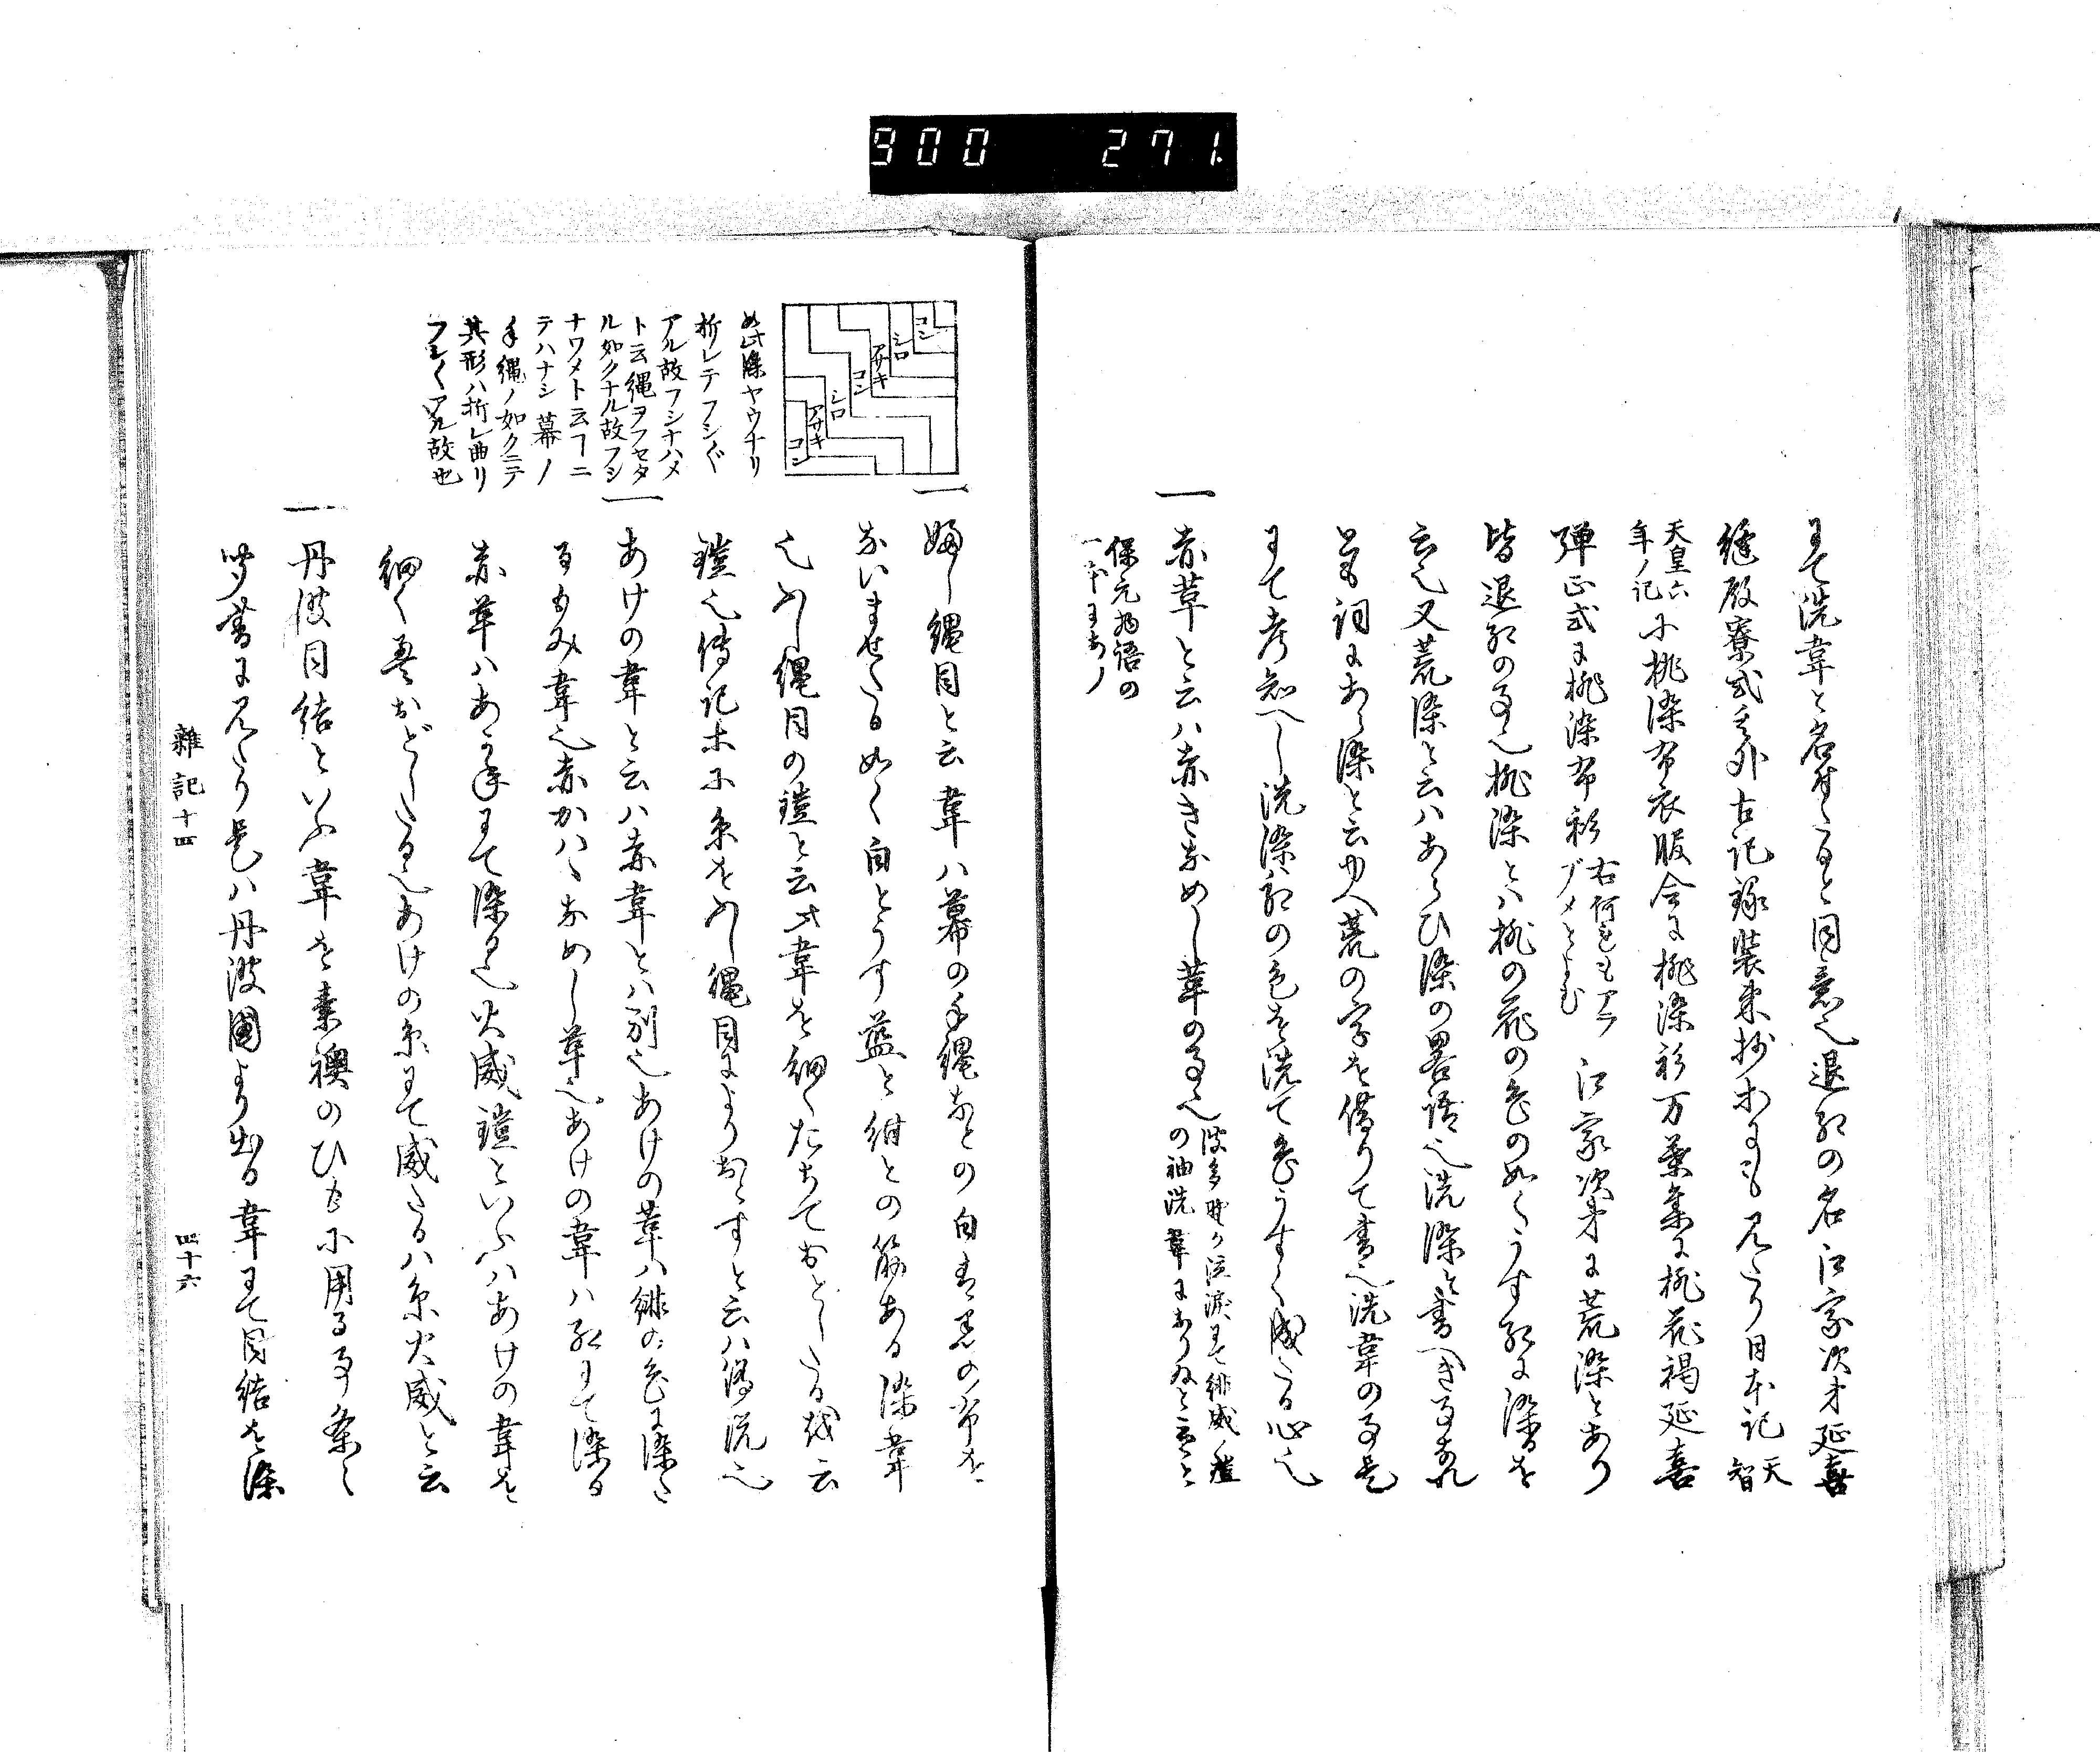 900 271.
にて洗韋と名付たると同意也退紅の名江家次才延喜
縫殿寮式其外古記録装束抄等にも見えたり日本記天智
天皇六年ノ記に桃染布衣服令に桃染衫万葉集に桃花褐延喜
弾正式に桃染布衫右何をもアラゾメとよむ江家次才に荒染とあり
皆退紅の事也桃染とハ桃の花の色のめくうす紅に染るを
云也又荒染と云ハあらひ染の畧語也洗染と書へき事なれ
とも詞にあら染と云ゆへ荒の字を借りて書也洗韋の事是
にて考知へし洗染ハ紅の色を洗て色うすく成たる心也
一赤革と云ハ赤きなめし革の事也波多野か泣涙にて緋威ノ鎧
の袖洗韋にありなと云こと
保元物語の
一本にあり
コン
シロ
アサキ
コン
シロ
アサキ
コン
如此染ヤウナリ
折レテフシ〴〵
アル故フシナハメ
ト云縄ヲフセタ
ル如クナル故フシ
ナワメト云フニ
テハナシ幕ノ
手縄ノ如クニテ
其形ハ折レ曲リ
フシ〳〵アル故也
一ふし縄目と云韋ハ幕の手縄なとの白青黒の布を
ないませたる如く白とうす藍と紺との筋ある染韋
也ふし縄目の鎧と云ハ此韋を細くたちておとしたる越云
鎧也傳記等に糸をふし縄目によりおとすと云ハ偽説也
一あけの韋と云ハ赤韋とハ別也あけの革ハ緋の色に染た
るもみ韋也赤かハゝなめし革也あけの韋ハ紅にて染る
赤革ハあかねにて染る也火威鎧といふハあけの韋を
細く置おどしたる也あけの糸にて威たるハ糸火威と云
一丹波目結といふ韋を素襖のひもに用る事条々
聞書に見えたり是ハ丹波國より出る韋にて目結を染
雜記十四
四十六